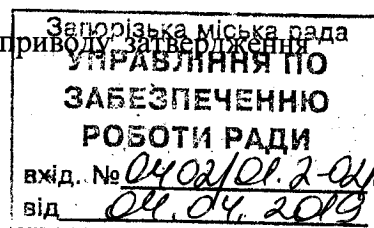 Запорізька міська рада
приводу затвердження
УПРАВЛІННЯ ПО
ЗАБЕЗПЕЧЕННЮ
РОБОТИ РАДИ
вхід. № 0402/01.2-02/
від 04.04.2019